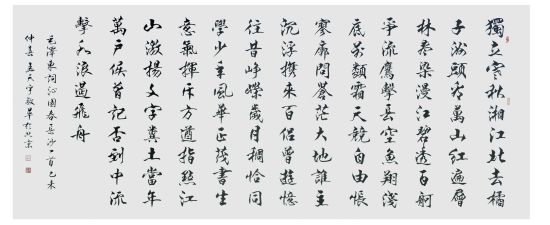 獨立寒秋湘江北去橘
子洲頭看萬山紅遍層
林盡染漫江碧透百舸
爭流鷹擊長空魚翔淺
底萬類霜天競自由悵
寥廓問蒼茫大地誰主
沉浮攜來百侶曾遊憶
往昔崢嶸歲月稠恰同
學少年風華正茂書生
意氣揮斥方遒指點江
山激揚文字糞土當年
萬戶侯曾記否到中流
擊水浪遏飛舟
毛澤東詞沁園春長沙一首乙未
仲春孟天宇敬草於北京